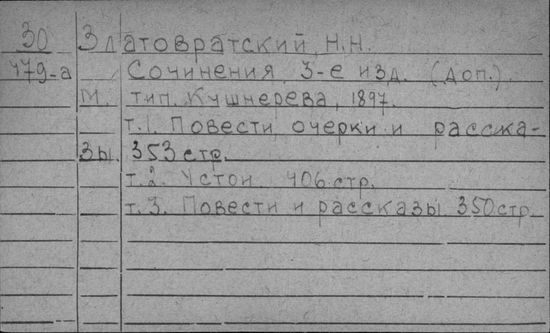 30 Златовратский, Н.Н.
479-а Сочинения, 3-е изд. (доп.).
М. тип. Кушнерева, 1897.
т.1. Повести, очерки и расска-
зы. 353 стр.
т.2. Устои. 406 стр.
т.3. Повести и рассказы 350 стр.